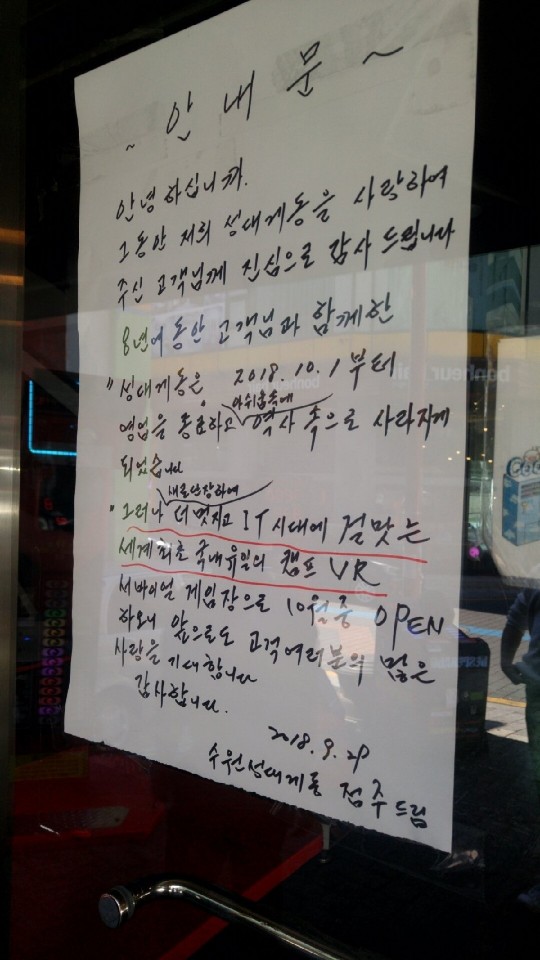 ~ 안 내 문 ~
안녕하십니까.
그동안 저희 성대게동을 사랑하여
주신 고객님께 진심으로 감사 드립니다
8년여 동안 고객님과 함께한
"성대게동은 2018.10.1 부터
아쉬움속에
영업을 종료하고 역사 속으로 사라지게
되었습니다
새로단장하여
"그러나 더 멋지고 IT시대에 걸맞는
세계최초 국내유일의 캠프 VR
서바이얼 게임장으로 10월중 OPEN
하오니 앞으로도 고객여러분의 많은
사랑을 기대합니다
감사합니다.
2018.9.20
수원성대게동 점주드림
bonheur hair